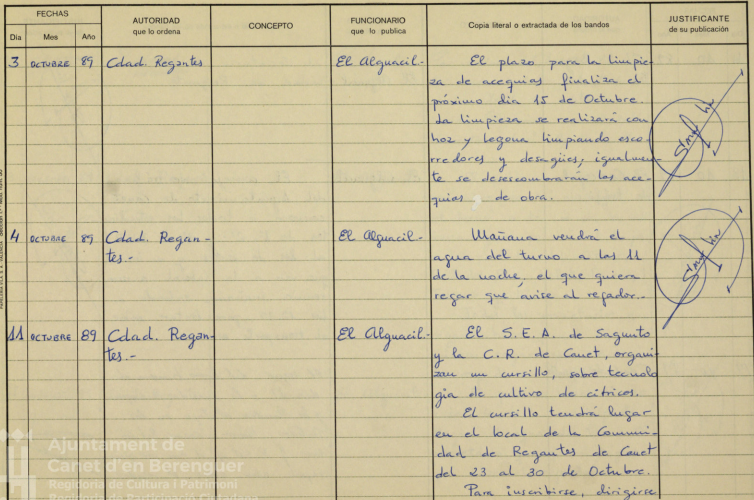 FECHAS
Dia Mes Año
AUTORIDAD
que lo ordena
CONCEPTO
FUNCIONARIO
que lo publica
Copia literal o extractada de los bandos
JUSTIFICANTE
de su publicación
3 OCTUBRE 89 Cdad. Regantes El Alguacil.-
El plazo para la limpie-
za de acequias finaliza el
próximo dia 15 de Octubre.
La limpieza se realizará con
hoz y legona limpiando esco-
rredores y desagües, igualmen-
te se desescombrarán las ace-
quias de obra.
4 OCTUBRE 89 Cdad. Regan-
tes.-
El Alguacil.-
Mañana vendrá el
agua del turno a las 11
de la noche, el que quiera
regar que avise al regador.-
11 OCTUBRE 89 Cdad. Regan-
tes.-
El Alguacil.-
El S.E.A. de Sagunto
y la C.R. de Canet, organi-
zan un cursillo, sobre tecnolo
gía de cultivo de cítricos.
El cursillo tendrá lugar
en el local de la Comuni-
dad de Regantes de Canet
del 23 al 30 de Octubre.
Para inscribirse, dirigirse
Ajuntament de
Canet d'en Berenguer
Regidoria de Cultura i Patrimoni